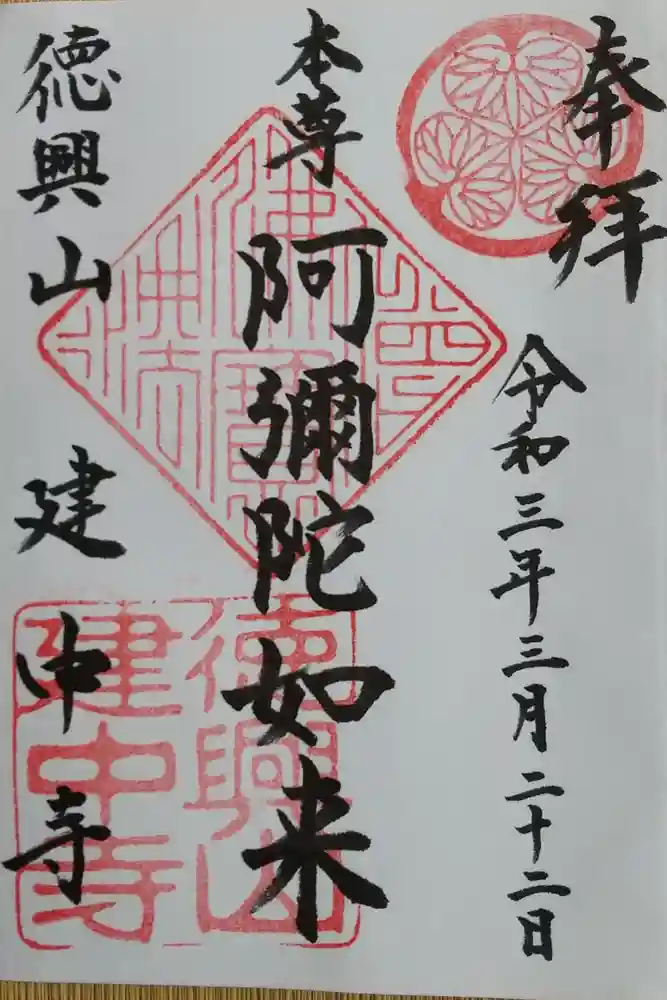 奉拝
令和三年三月二十二日
本尊
阿彌陀如来
徳興山 建中寺
佛法僧寶
徳興山
建中寺